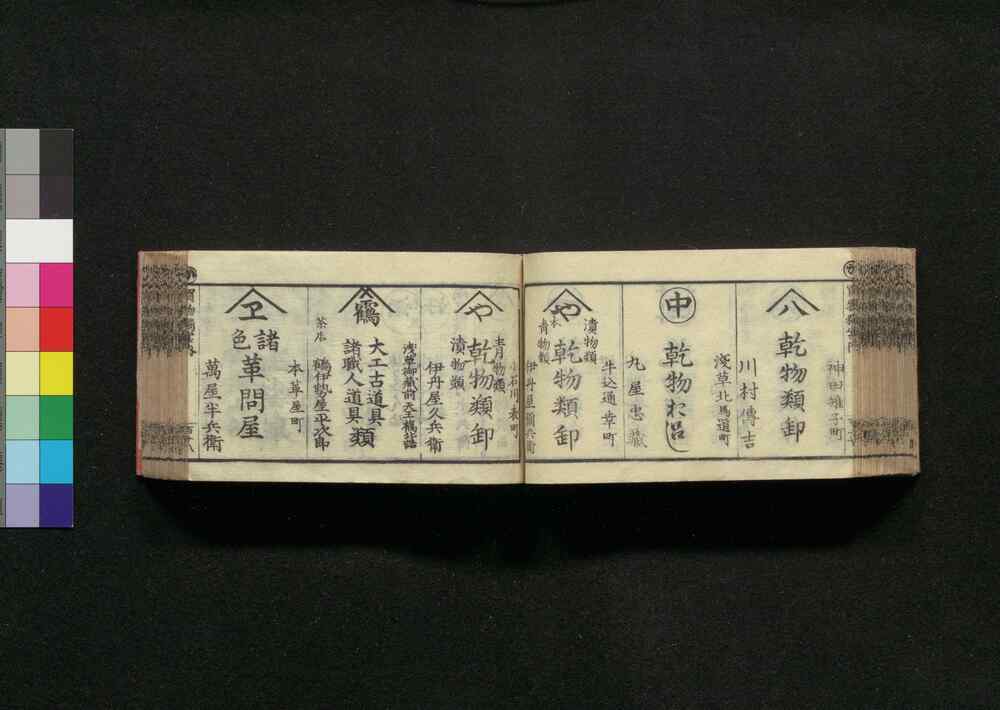 八
乾物類卸
神田雉子町
川村傳吉
中
乾物おろし
淺草北馬道町
丸屋忠藏
や
乾物類卸
漬物類
青物類
牛込通寺町
伊丹屋彌兵衛
や
乾物類卸
青物類
漬物類
小石川表町
伊丹屋久兵衛
鶴
大工古道具
諸職人道具類
淺草御藏前天王橋角
鶴伊勢屋平次郎
諸色
革問屋
本革屋町
萬屋半兵衛